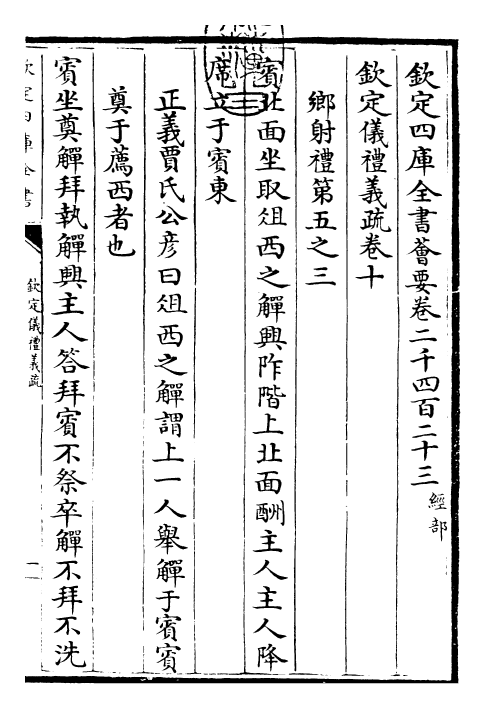 欽定四庫全書薈要卷二千四百二十三 經部
欽定儀禮義疏卷十
鄉射禮第五之三
賓北面坐取俎西之觶興阼階上北面酬主人主人降
席立于賓東
正義賈氏公彦曰俎西之觶謂上一人舉觶于賓賓
奠于薦西者也
賓坐奠觶拜執觶興主人答拜賓不祭卒觶不拜不洗
欽定四庫全書
欽定儀禮義疏
一